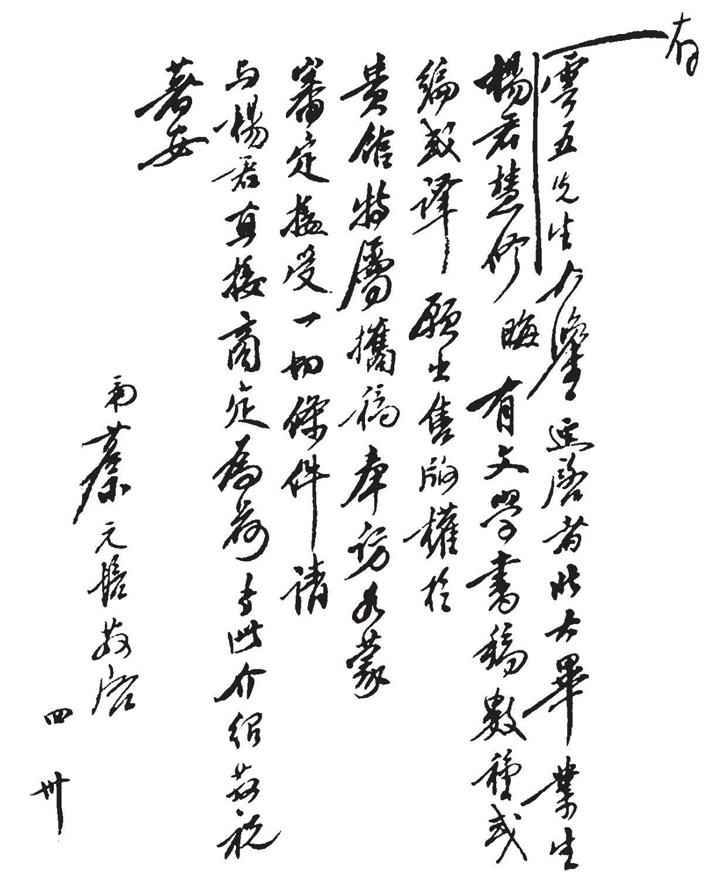 存
雲五先生大鑒逕啓者北大畢業生
楊君慧修晦有文學書稿數種或
編或譯願出售版權於
貴館特屬攜稿奉訪如蒙
審定接受一切條件請
與楊君直接商定爲荷專此介紹敬祝
著安
弟蔡元培敬啓
四 卅